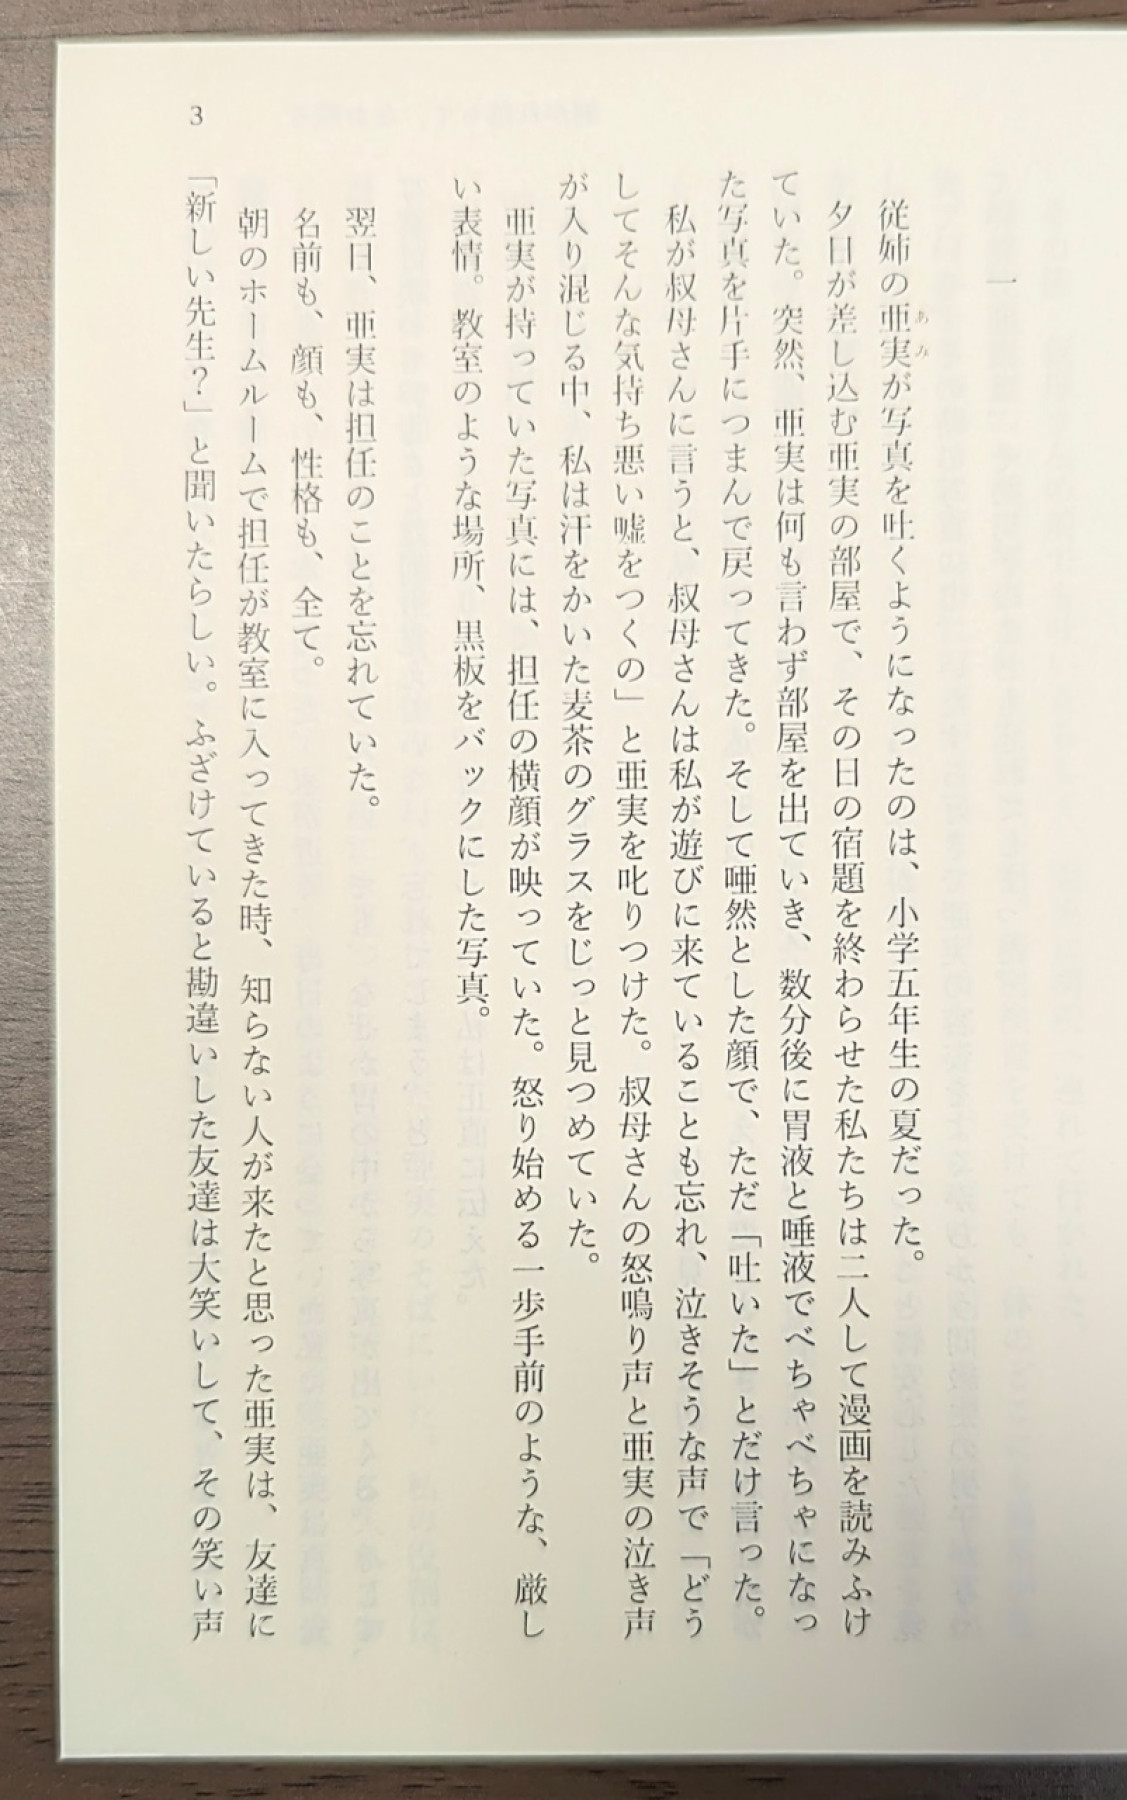 一
従姉の亜実が写真を吐くようになったのは、小学五年生の夏だった。
あみ
夕日が差し込む亜実の部屋で、その日の宿題を終わらせた私たちは二人して漫画を読みふけ
ていた。突然、亜実は何も言わず部屋を出ていき、数分後に胃液と唾液でべちゃべちゃになっ
た写真を片手につまんで戻ってきた。そして唖然とした顔で、ただ「吐いた」とだけ言った。
私が叔母さんに言うと、叔母さんは私が遊びに来ていることも忘れ、泣きそうな声で「どう
してそんな気持ち悪い嘘をつくの」と亜実を叱りつけた。叔母さんの怒鳴り声と亜実の泣き声
が入り混じる中、私は汗をかいた麦茶のグラスをじっと見つめていた。
亜実が持っていた写真には、担任の横顔が映っていた。怒り始める一歩手前のような、厳し
い表情。教室のような場所、黒板をバックにした写真。
翌日、亜実は担任のことを忘れていた。
名前も、顔も、性格も、全て。
朝のホームルームで担任が教室に入ってきた時、知らない人が来たと思った亜実は、友達に
「新しい先生？」と聞いたらしい。ふざけていると勘違いした友達は大笑いして、その笑い声
3